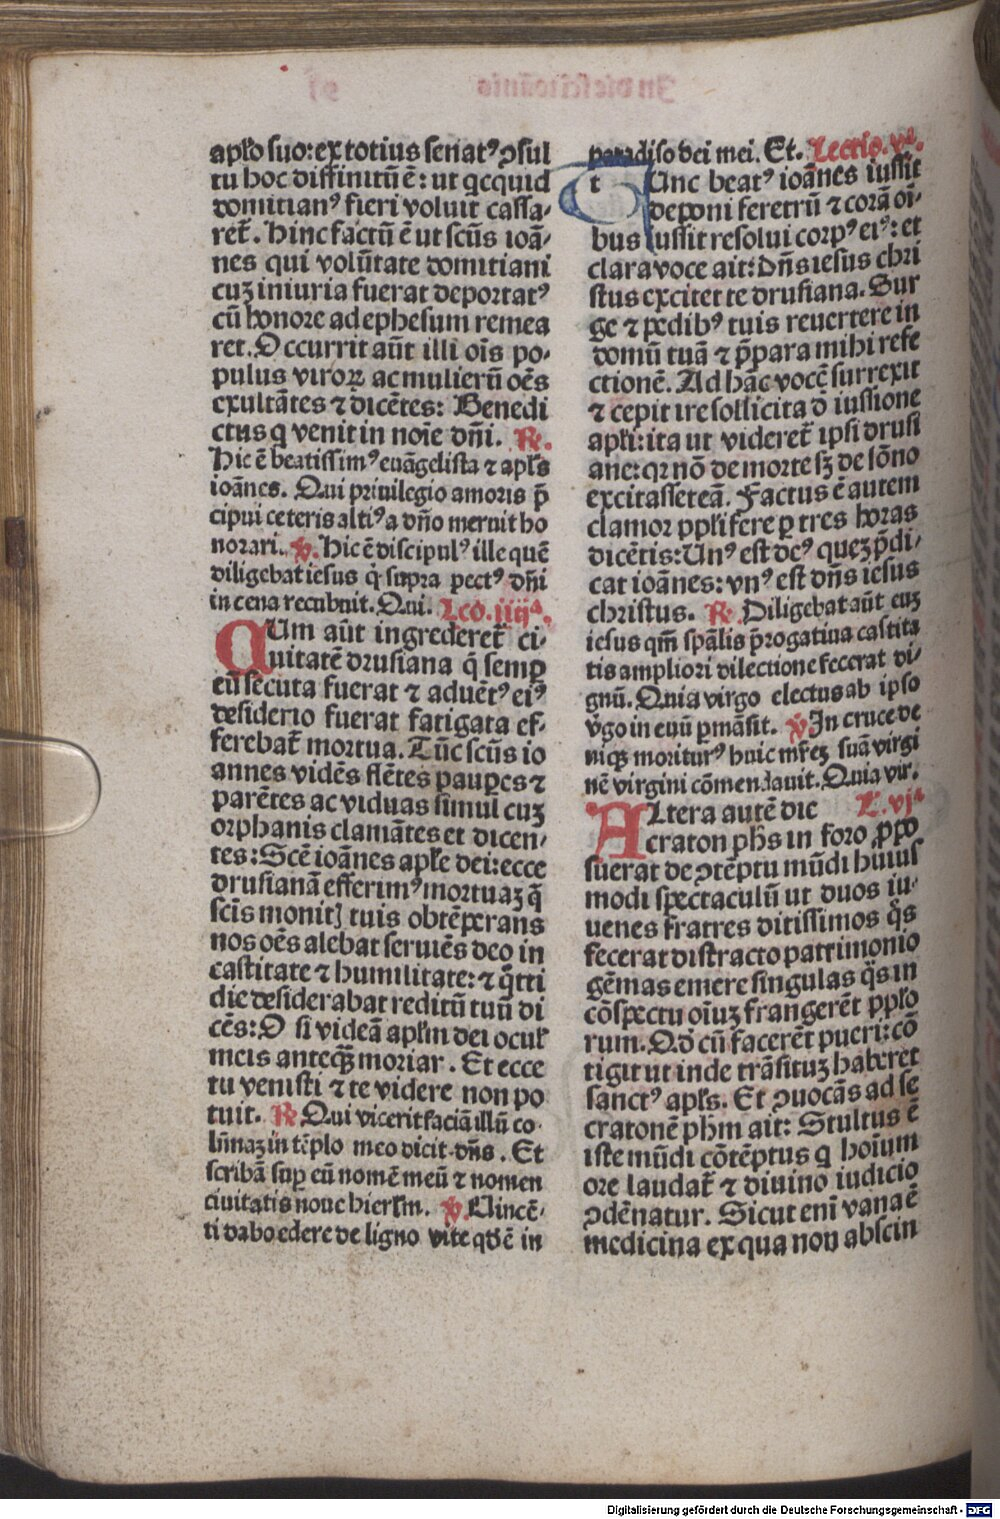 apl̃o suo: ex totius senatꝰ ↄsul
tu hoc diffinitũ ẽ: ut qcquid
domitianꝰ fieri voluit cassa-
ret̃. Hinc factũ ẽ ut scũs ioã-
nes qui volũtate domitiani
cuꝫ iniuria fuerat deportatꝰ
cũ honore ad ephesum remea
ret. Occurrit aũt illi oĩs po-
pulus viroꝝ ac mulierũ oẽs
exultãtes ⁊ dicẽtes: Benedi
ctus q venit in noĩe dñi. ℞.
Hic ẽ beatissimꝰ euãgelista ⁊ apl̃s
ioãnes. Qui priuilegio amoris p̃
cipui ceteris altiꝰ a dño meruit ho
norari. ℣. Hic ẽ discipulꝰ ille quẽ
diligebat iesus q̇ supra pectꝰ dñi
in cena recubuit. Qui. Lcõ. iiijᵃ.
CUm aũt ingrederet̃ ci-
uitatẽ drusiana q̃ semꝑ
eũ secuta fuerat ⁊ aduẽtꝰ eiꝰ
desiderio fuerat fatigata ef-
ferebat̃ mortua. Tũc scũs io
annes vidẽs flẽtes pauꝑes ⁊
parẽtes ac viduas simul cuꝫ
orphanis clamãtes et dicen-
tes: Scẽ ioãnes apl̃e dei: ecce
drusianã efferimꝰ mortuaꝫ q̃
scĩs monitꝭ tuis obtẽperans
nos oẽs alebat seruiẽs deo in
castitate ⁊ humilitate: ⁊ q̃tti
die desiderabat reditũ tuũ di
cẽs: O si videã apl̃m dei ocul̃
meis anteq̃ꝫ moriar. Et ecce
tu venisti ⁊ te videre non po
tuit. ℞. Qui vicerit faciã illũ co-
lũnaꝫ in tẽplo meo dicit dñs. Et
scribã suꝑ eũ nomẽ meũ ⁊ nomen
ciuitatis noue hierl̃m. ℣. Vincẽ-
ti dabo edere de ligno vite qđ ẽ in
paradiso dei mei. Et. Lectio. vᵃ.
t Unc beatꝰ ioãnes iussit
deponi feretrũ ⁊ corã oĩ-
bus iussit resolui corpꝰ eiꝰ: et
clara voce ait: Dñs iesus chri
stus excitet te drusiana. Sur
ge ⁊ pedibꝰ tuis reuertere in
domũ tuã ⁊ p̃para mihi refe
ctionẽ. Ad hãc vocẽ surrexit
⁊ cepit ire sollicita đ iussione
apl̃i: ita ut videret̃ ipsi drusi
ane: qꝛ nõ de morte sꝫ de sõno
excitasset eã. Factus ẽ autem
clamor ppl̃i fere ꝑ tres horas
dicẽtis: Unꝰ est deꝰ queꝫ p̃di-
cat ioãnes: vnꝰ est dñs iesus
christus. ℞. Diligebat aũt euꝫ
iesus qm̃ spãlis p̃rogatiua castita
tis ampliori dilectione fecerat di-
gnũ. Quia virgo electus ab ipso
v̓go in euũ ꝑmãsit. ℣. In cruce de
niqꝫ moriturꝰ huic mr̃eꝫ suã virgi
nẽ virgini cõmendauit. Quia vir.
ALtera autẽ die L. vjᵃ
craton phs̃ in foro ꝓpo
suerat de ↄtẽptu mũdi huius
modi spectaculũ ut duos iu-
uenes fratres ditissimos q̃s
fecerat distracto patrimonio
gẽmas emere singulas q̃s in
cõspectu oĩuꝫ frangerẽt ppl̃o
rum. Qđ cũ facerẽt pueri: cõ
tigit ut inde trãsituꝫ haberet
sanctꝰ apl̃s. Et ↄuocãs ad se
cratonẽ phm̃ ait: Stultus ẽ
iste mũdi cõtẽptus q hoĩum
ore laudat̃ ⁊ diuino iudicio
ↄdẽnatur. Sicut enĩ vana ẽ
medicina ex qua non abscin
Digitalisierung gefördert durch die Deutsche Forschungsgemeinschaft - DFG